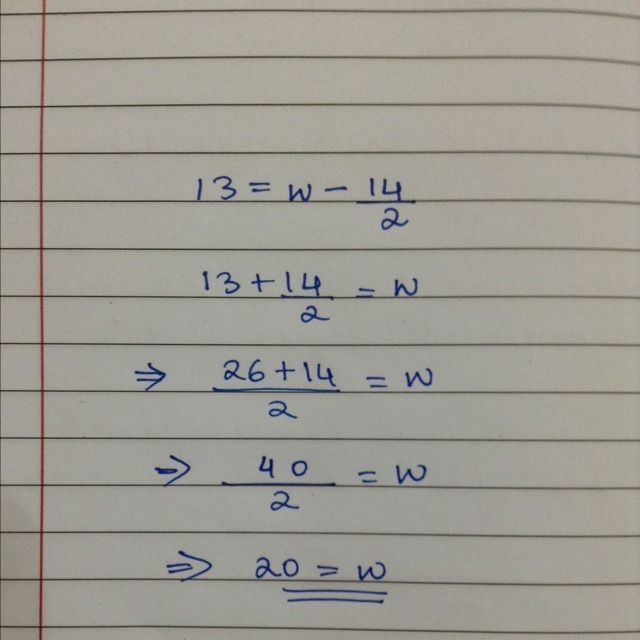 13 = w - 14/2
13 + 14/2 = w
⇒ (26 + 14)/2 = w
⇒ 40/2 = w
⇒ 20 = w